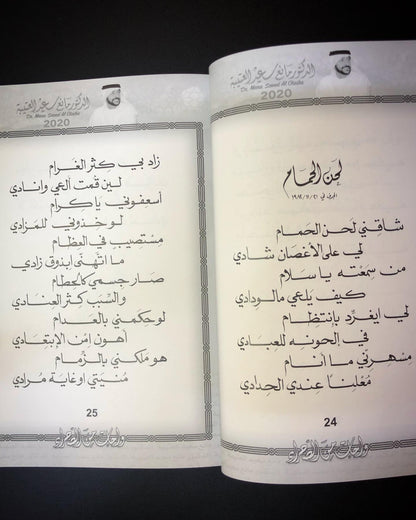 الدكتور مانع سعيد العتيبة
Dr. Mana Saeed Al Otaiba
2020
لحن الحمام
شاقني لحن الحمام
لي على الأغصان شادي
من سمعته يا سلام
كيف يلعي مالودادي
لي ايغرد بإنتظام
في إلحونه للعبادي
منهرني ما أنام
معلنا عندي الحدادي
24
واحات من الصحراء
الدكتور مانع سعيد العتيبة
Dr. Mana Saeed Al Otaiba
2020
زاد بي كثر الغرام
لين قمت العي وانادي
أسعفوني يا كرام
لو خذوني للمزادي
مستصيب في العظام
ما اتهنى ابذوق زادي
صار جسمي كالحطام
والسبب كثر العنادي
لو حكمني بالعدام
أهون امن الإبتعادي
هو ملكني بالزمام
منيتي اوغاية مرادي
25
واحات من الصحراء